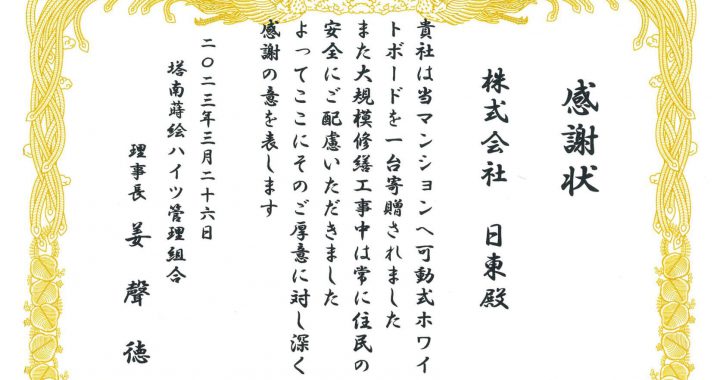 感謝状
株式会社 日東殿
貴社は当マンションへ可動式ホワイ
トボードを一台寄贈されました
また大規模修繕工事中は常に住民の
安全にご配慮いただきました
よってここにそのご厚意に対し深く
感謝の意を表します
二〇二三年三月二十六日
塔南蒔絵ハイツ管理組合
理事長 姜聲徳